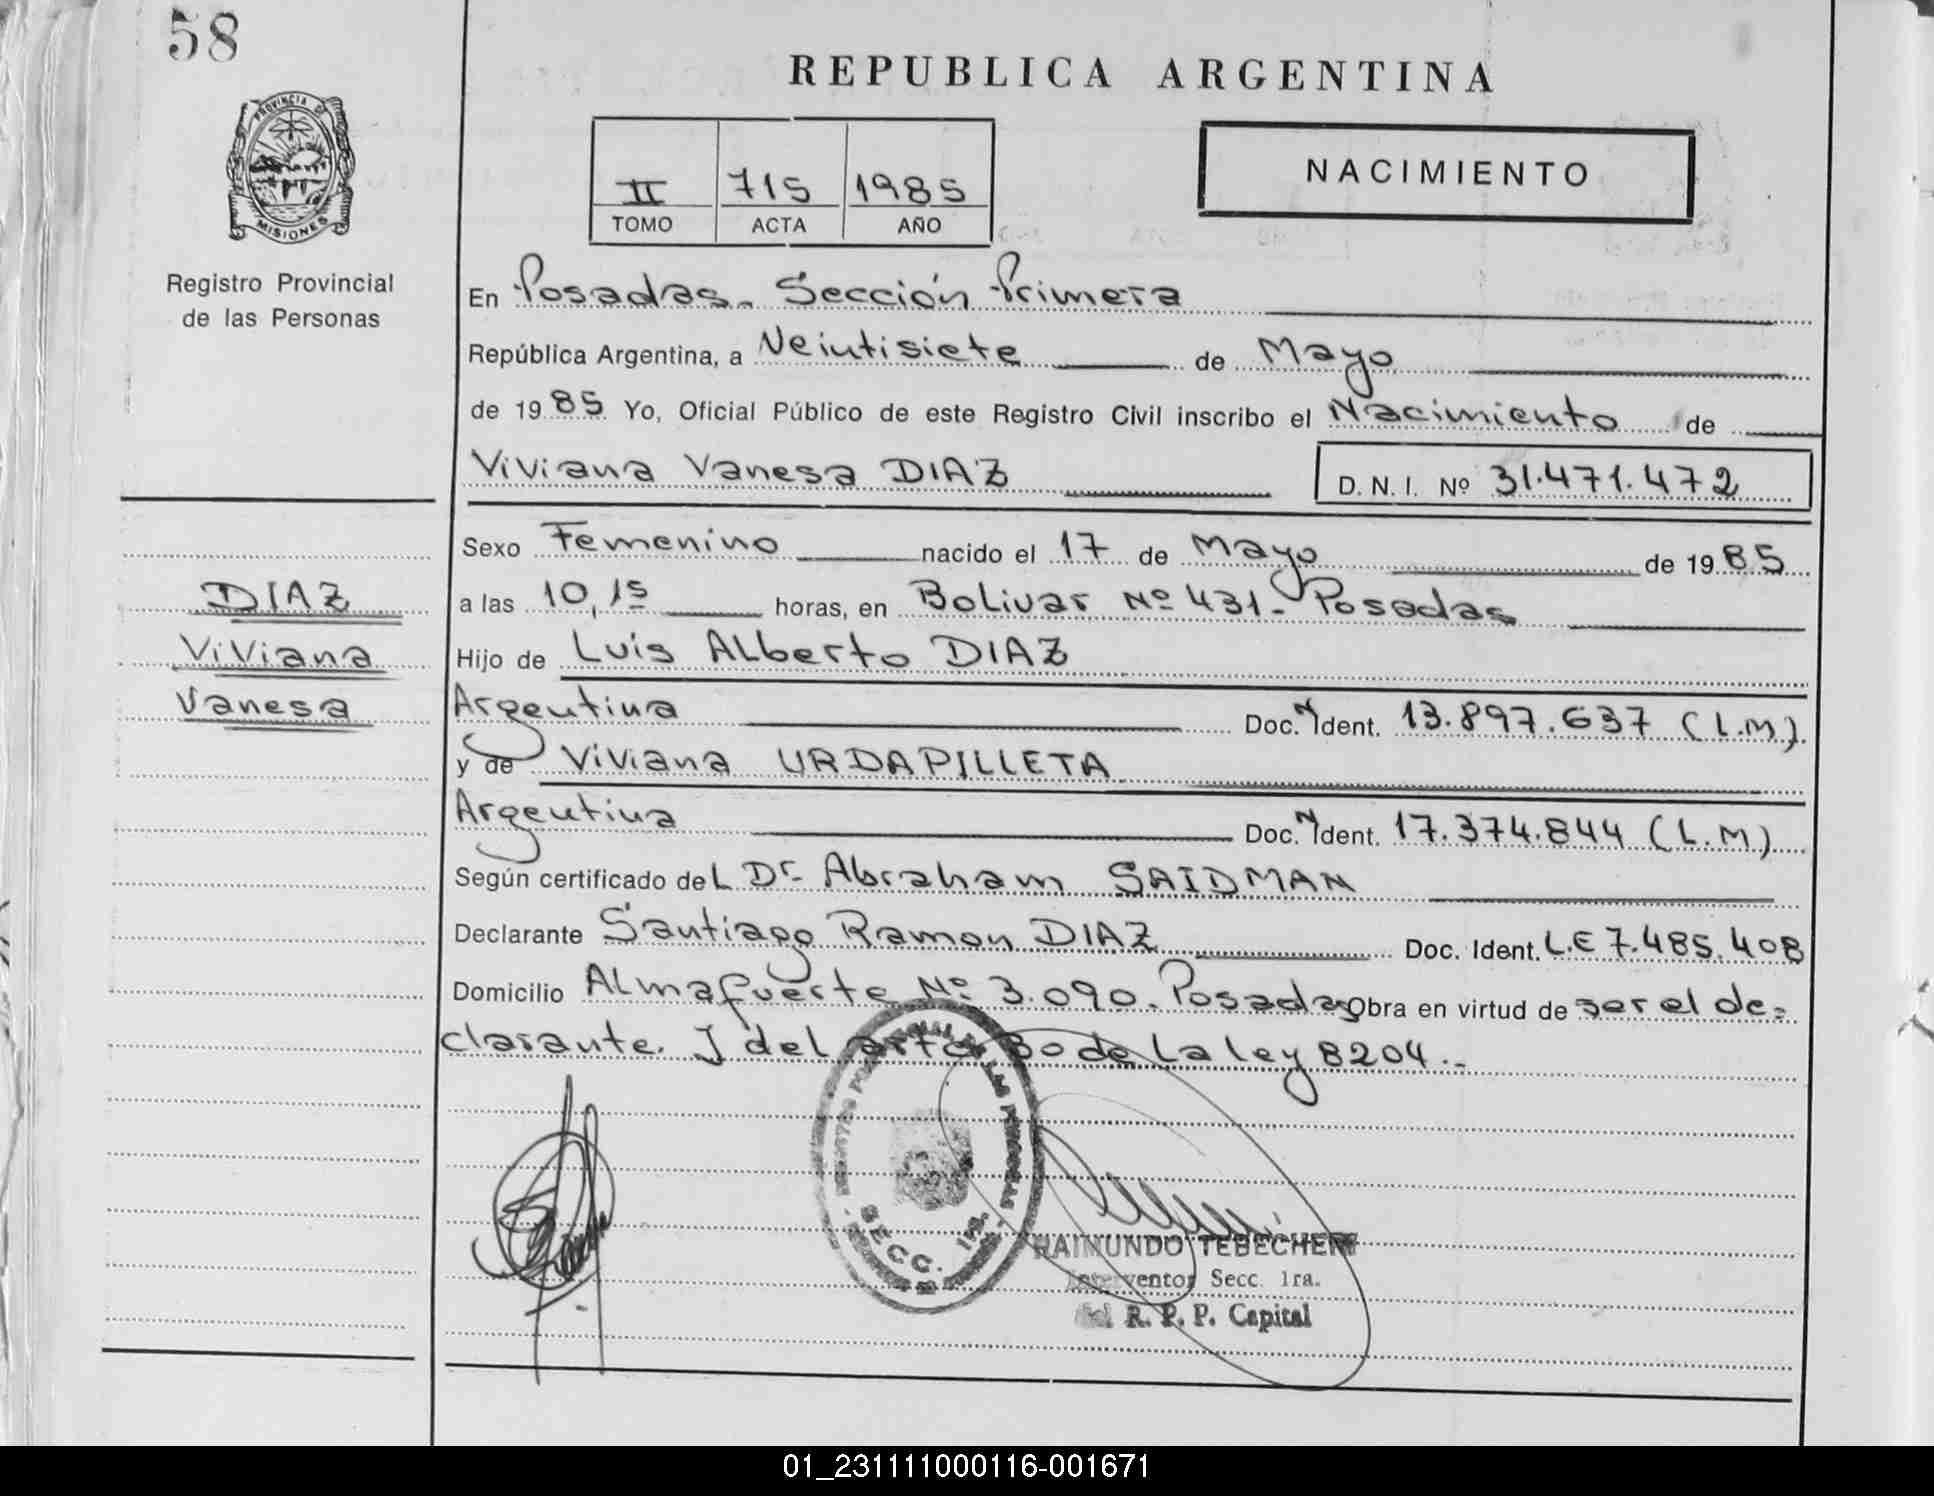 58
REPUBLICA ARGENTINA
PROVINCIA DE
MISIONES
II 715 1985
TOMO ACTA AÑO
NACIMIENTO
Registro Provincial
de las Personas
En Posadas. Sección Primera
República Argentina, a Veintisiete de Mayo
de 1985 Yo, Oficial Público de este Registro Civil inscribo el Nacimiento de
Viviana Vanesa DIAZ D. N. I. Nº 31.471.472
Sexo Femenino nacido el 17 de Mayo de 1985
DIAZ
Viviana
Vanesa
a las 10,15 horas, en Bolivar Nº 431- Posadas
Hijo de Luis Alberto DIAZ
Argentina Doc. N Ident. 13.897.637 (L.M).
y de Viviana URDAPILLETA
Argentina Doc. N Ident. 17.374.844 (L.M)
Según certificado del Dr. Abraham SAIDMAN
Declarante Santiago Ramon DIAZ Doc. Ident. L.E 7.485.408
Domicilio Almafuerte Nº 3.090. Posadas Obra en virtud de ser el de=
clarante. J del arto 30 de la ley 8204.-
SECC. 1ra.
RAIMUNDO TEBECHERI
Interventor Secc. 1ra.
del R. P. P. Capital
01_231111000116-001671